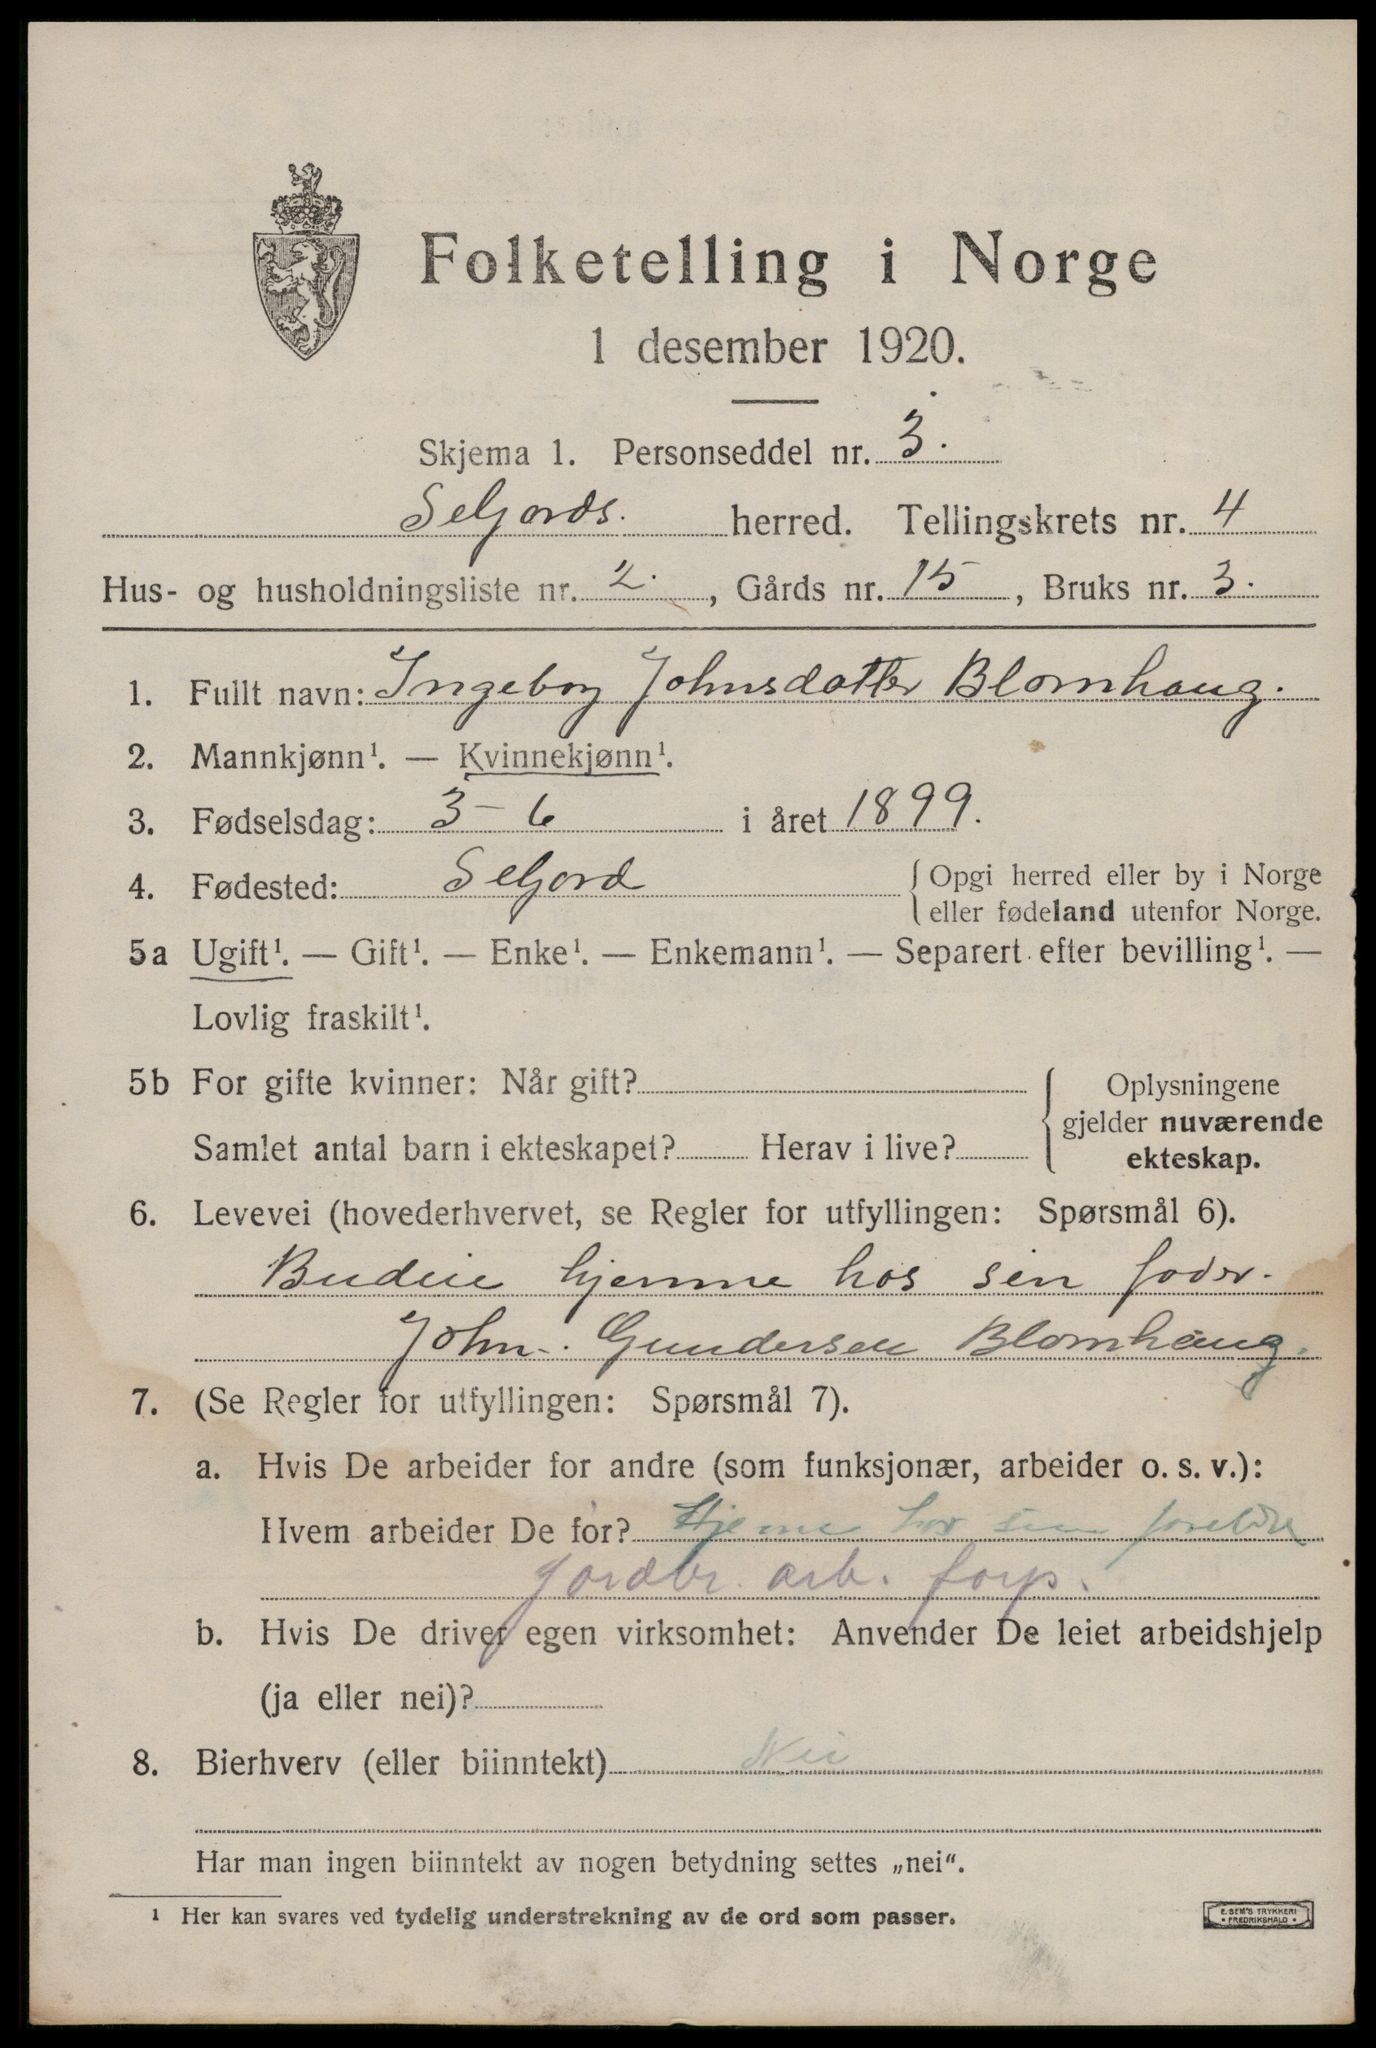 Folketelling i Norge
1 desember 1920.
Skjema 1. Personseddel nr. 3.
Seljords. herred. Tellingskrets nr. 4
Hus- og husholdningsliste nr. 2. , Gårds nr. 15 , Bruks nr. 3.
1. Fullt navn: Ingeborg Johnsdatter Blomhaug.
2. Mannkjønn¹. — Kvinnekjønn¹.
3. Fødselsdag: 3-6 i året 1899.
4. Fødested: Seljord { Opgi herred eller by i Norge
eller fødeland utenfor Norge.
5a Ugift¹. — Gift¹. — Enke¹. — Enkemann¹. — Separert efter bevilling¹. —
Lovlig fraskilt¹.
5b For gifte kvinner: Når gift? { Oplysningene
gjelder nuværende
Samlet antal barn i ekteskapet? Herav i live? ekteskap.
6. Levevei (hovederhvervet, se Regler for utfyllingen: Spørsmål 6).
Budeie hjemme hos sin fader.
John. Gundersen Blomhaug.
7. (Se Regler for utfyllingen: Spørsmål 7).
a. Hvis De arbeider for andre (som funksjonær, arbeider o. s. v.):
Hvem arbeider De for? Hjeme hos sine foreldre
jordbr. arb. forp.
b. Hvis De driver egen virksomhet: Anvender De leiet arbeidshjelp
(ja eller nei)?
8. Bierhverv (eller biinntekt) Nei
Har man ingen biinntekt av nogen betydning settes „nei“.
¹ Her kan svares ved tydelig understrekning av de ord som passer.
E. SEM'S TRYKKERI
• FREDRIKSHALD •